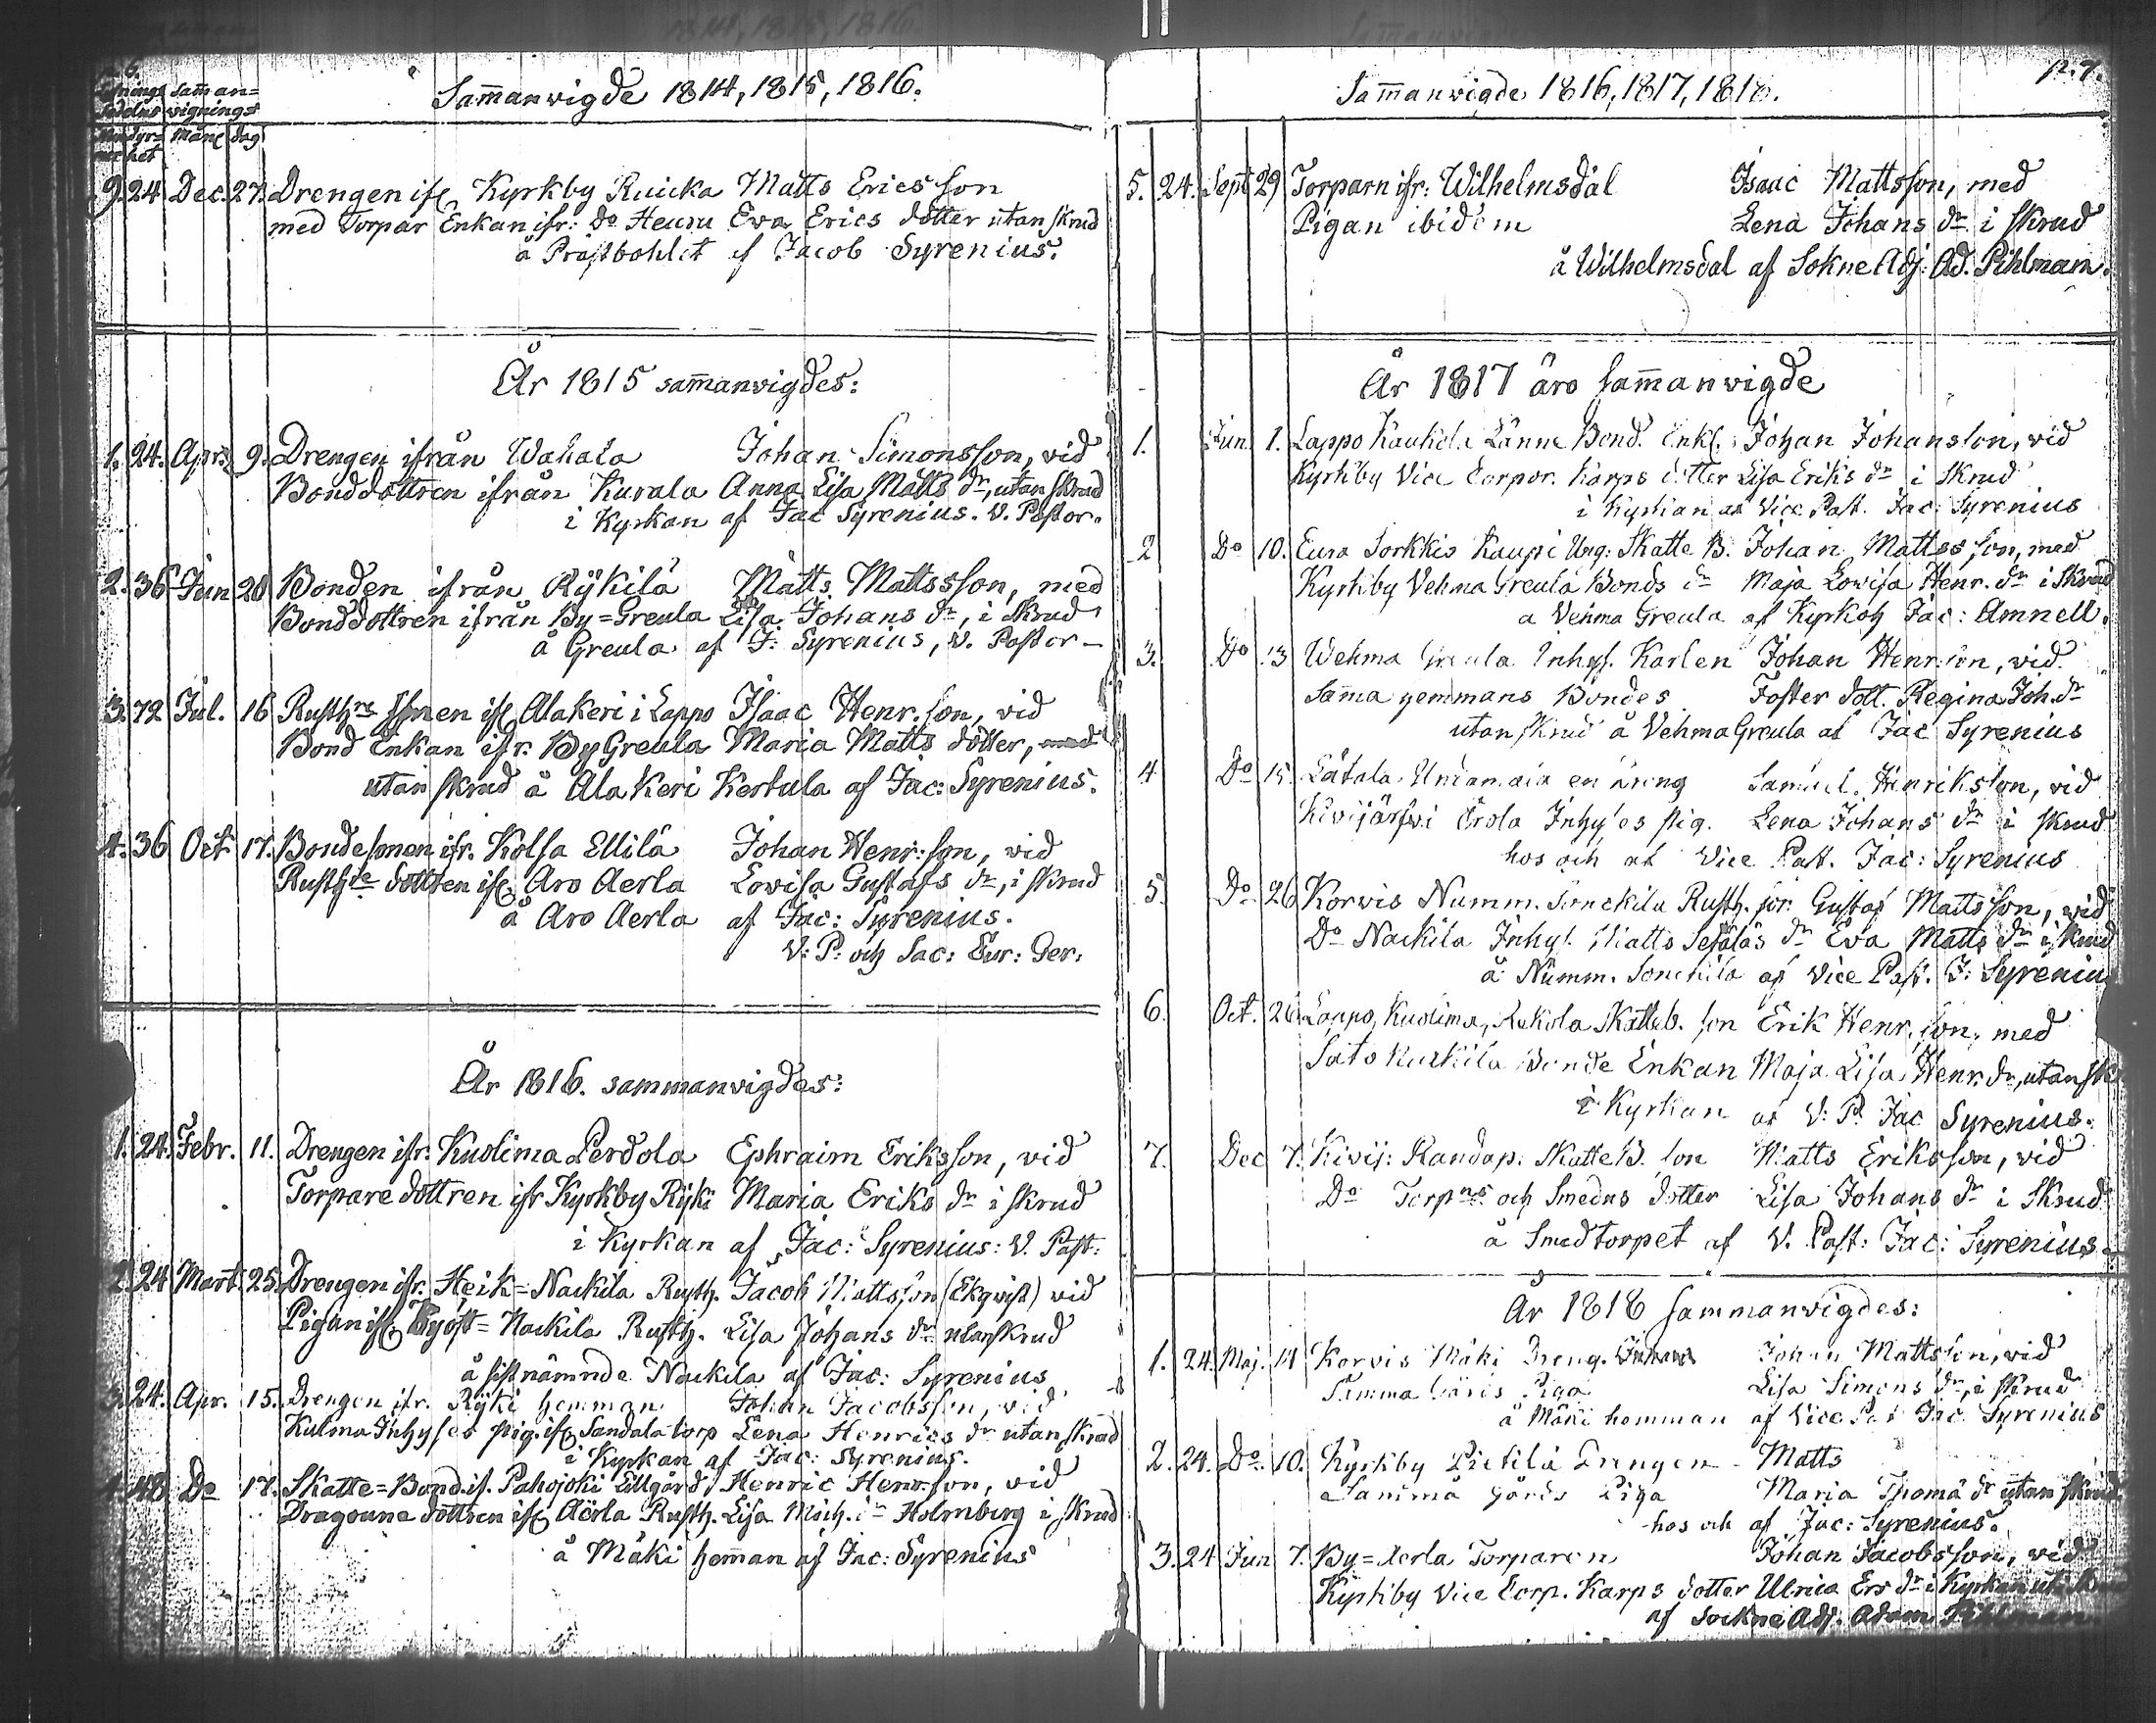 Sam̄anwigde 1814, 1815, 1816.
sam̄an=
wignings
Mån dag
9. 24 Dec. 27. Drengen ifr. Kyrkby Ruicka Matts Ericsson
med Torpar Enkan ifr: Do Heuru Eva Erics dotter utan skrud
å Prästbohlet af Jacob Syrenius.
År 1815 sam̄anwigdes:
1. 24. Apr. 9. Drengen ifrån Wahala Johan Simonsson, vid
Bonddottren ifrån Kurala Anna Lisa Matts dr, utan skrud
i Kyrkan af Jac Syrenius. V. Pastor.
2. 36 Jun 20 Bonden ifrån Rÿkilä Matts Mattsson, med
Bonddottren ifrån By=Greula Lisa Johans dr, i skrud
å Greula af J: Syrenius, V. Pastor –
3. 72 Jul. 16 Rusth. Sonen ifr. Alakeri i Lappo Isaac Henr. son, vid
Bond Enkan ifr. By Greula Maria Matts dotter, med
utan skrud å Ala Keri Kertula af Jac: Syrenius.
4. 36 Oct 17. Bondesonen ifr. Kolsa Ellilä Johan Henr: son, vid
Rusth. dottren ifr. Aro Aerla Lovisa Gustafs dr, i skrud
å Aro Aerla af Jac: Syrenius.
V: P: och Sac: Eur: Ger:
År 1816. sammanvigdes:
1. 24. Febr. 11. Drengen ifr: Kuolima Perdola Ephraim Eriksson, vid
Torpare dottren ifr Kyrkby Rÿki Maria Eriks dr i skrud
i Kyrkan af Jac: Syrenius: V. Past:
2. 24 Mart. 25. Drengen ifr. Heik=Nackila Rusth. Jacob Mattsson (Ekqvist) vid
Pigan ifr. Kyöst=Nackila Rusth. Lisa Johans dr utan skrud
å sistnämnde Nackila af Jac: Syrenius
3. 24. Apr. 15. Drengen ifr. Rÿki hemman Johan Jacobsson, vid
Kulma Inhyses pig. ifr. Sandala torp Lena Henrics dr utan skrud
i Kyrkan af Jac: Syrenius.
4. 48 Do 17. Skatte=Bond. if. Pahojoki Lillgård Henric Henr. son, vid
Dragoune dottren ifr. Aerla Rusth. Lisa Mich. dr Holmberg i skrud
å Mäki hem̄an af Jac: Syrenius
Sam̄anwigde 1816, 1817, 1818.
p. 7.
5. 24. Sept 29 Torparn ifr: Wilhelmsdal Isaac Mattsson, med
Pigan ibidem Lena Johans dr i skrud
å Wilhelmsdal af Sokne Adj: Ad. Pihlman.
År 1817 äro sam̄anwigde
1. Jun. 1. Lappo Kaukola Länne Bond. Enkl. Johan Johansson, vid
Kyrkby Vice Corpor. Karps dotter Lisa Eriks dr i skrud
i Kyrkan af Vice Past. Jac: Syrenius
2 Do 10. Eura Sorkkis Kaupi Ung: Skatte B. Johan Mattsson, med
Kyrkby Vehma Greula Bonds dr Maja Lowisa Henr. dr i skrud
a Vehma Greula af Kyrkoh Jac: Amnell.
3. Do 13 Wehma Greula Inhys. Karlen Johan Henr. son, vid
Samma hemmans Bondes Foster dott. Regina Joh. dr
utan skrud å Vehma Greula af Jac Syrenius
4 Do 15. Lätala Undamaia en dreng Samuel Hinriksson, vid
Kivijärfvi Erola Inhyses pig. Lena Johans dr i skrud
hos och af Vice Past. Jac: Syrenius
5. Do 26 Korvis Numm. Sonckila Rusth. son Gustaf Mattsson, vid
Do Nackila Inhys. Matts Sefäläs dr Eva Matts dr i skrud
å Numm. Sonckila af Vice Past. J: Syrenius
6. Oct. 26 Lappo, Kuolima, Rekola Skatteb. son Erik Henr. son, med
Säto Kurkila Bonde Enkan Maja Lisa Henr. dr, utan sk
i Kyrkan af V: P. Jac Syrenius.
7. Dec 7. Kivij: Kandap: Skatte B. son Matts Eriksson, vid
Do Torpns och Smedns dotter Lisa Johans dr i Skrud
å Smedtorpet af V. Past: Jac: Syrenius
År 1818 sammanvigdes:
1. 24. Maj. Korvis Mäki Dreng. Johan Mattsson, vid
Samma Gårds Piga Lisa Simons dr, i skrud
å Mäki hemman af Vice Pas Jac Syrenius
2. 24. Do. 10. Kyrkby Pietilä Drengen Matts
Samma gårds Piga Maria Thomä dr utan skrud
hos och af Jac: Syrenius.
3. 24 Jun 7. By=Aerla Torparen Johan Jacobsson, vid
Kyrkby Vice Corp. Karps dotter Ulrica Ers dr i Kyrkan
af Sockne Adj. Adam Pihlman